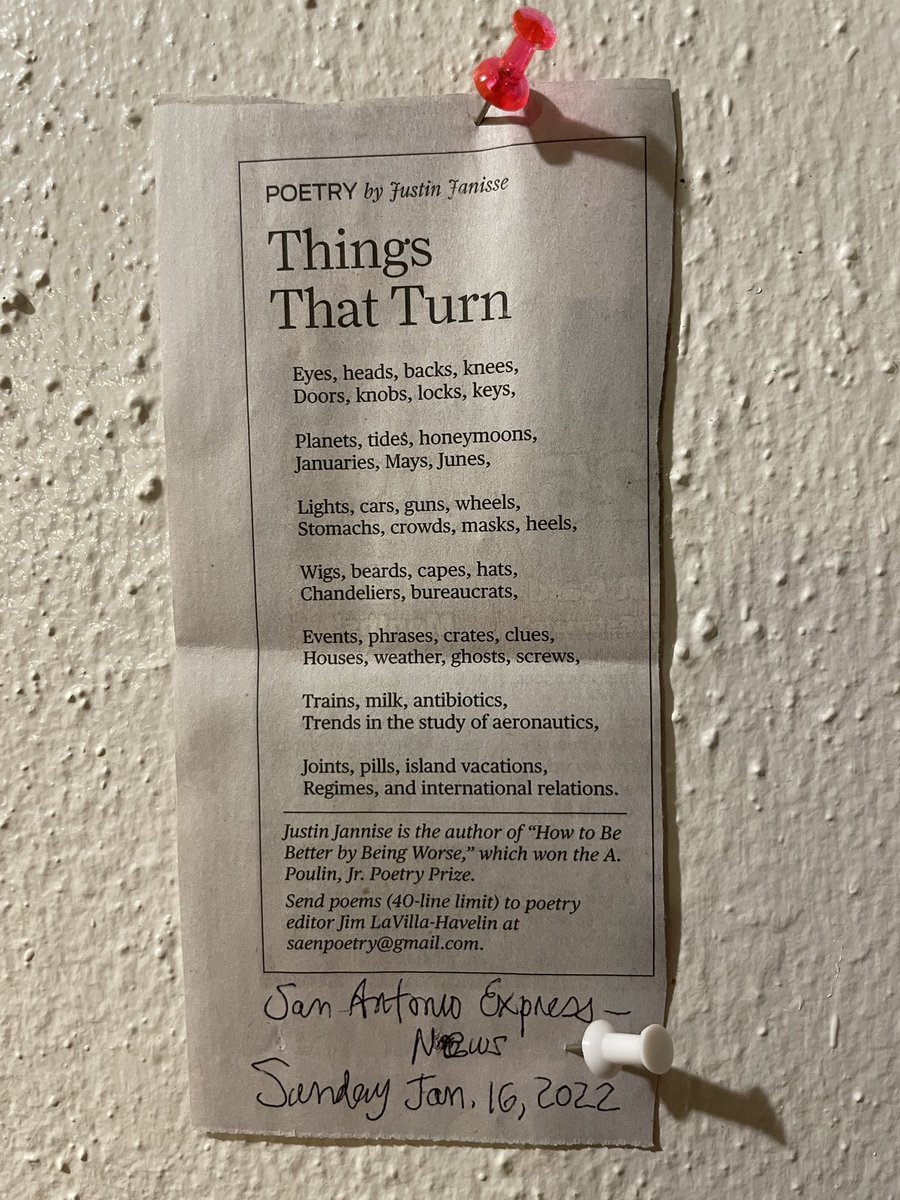 POETRY by Justin Janisse
Things
That Turn
Eyes, heads, backs, knees,
Doors, knobs, locks, keys,
Planets, tides, honeymoons,
Januaries, Mays, Junes,
Lights, cars, guns, wheels,
Stomachs, crowds, masks, heels,
Wigs, beards, capes, hats,
Chandeliers, bureaucrats,
Events, phrases, crates, clues,
Houses, weather, ghosts, screws,
Trains, milk, antibiotics,
Trends in the study of aeronautics,
Joints, pills, island vacations,
Regimes, and international relations.
Justin Jannise is the author of “How to Be
Better by Being Worse,” which won the A.
Poulin, Jr. Poetry Prize.
Send poems (40-line limit) to poetry
editor Jim LaVilla-Havelin at
saenpoetry@gmail.com.
San Antonio Express–
News
Sunday Jan. 16, 2022